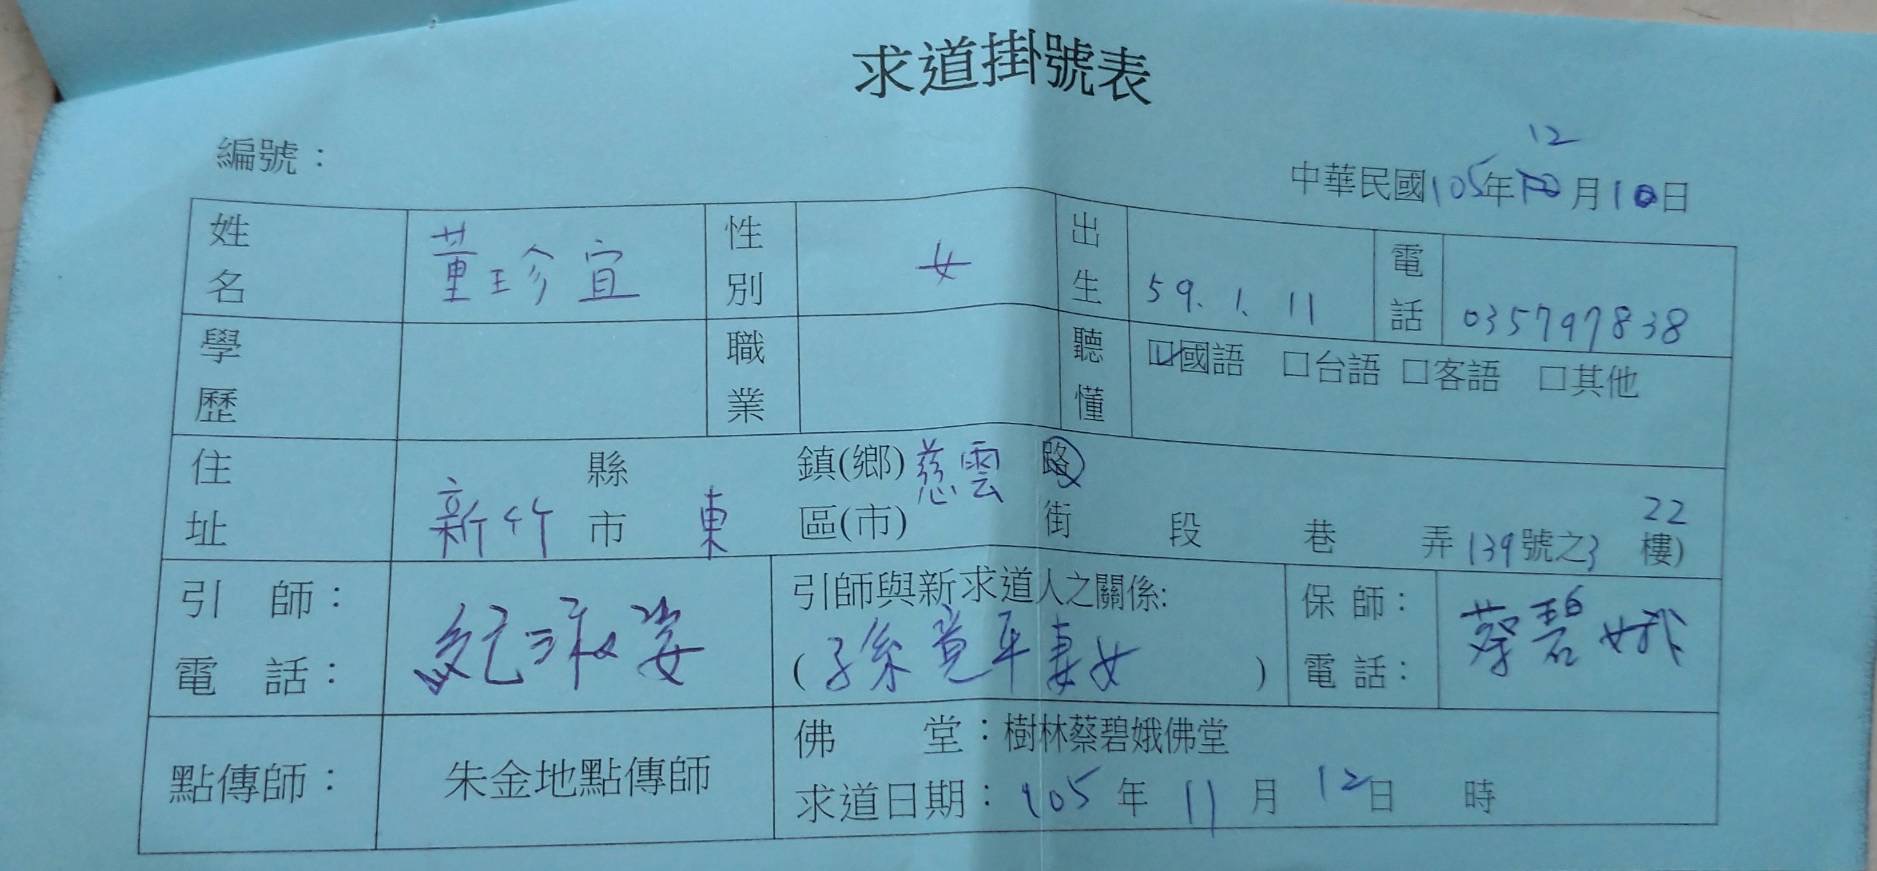 求道掛號表
編號：
12
中華民國105年月10日
姓名 董珍宜 性別 女 出生 59.1.11 電話 035797838
學歷 職業 聽懂 ☑國語 □台語 □客語 □其他
住址 新竹 縣市 東 鎮(鄉)區(市) 慈雲 路街 段 巷 弄 139號之3 22樓)
引師：電話： 紀淑姿 引師與新求道人之關係:(孫竟平妻女) 保師：電話： 蔡碧娥
點傳師： 朱金地點傳師 佛堂：樹林蔡碧娥佛堂
求道日期：105年11月12日 時